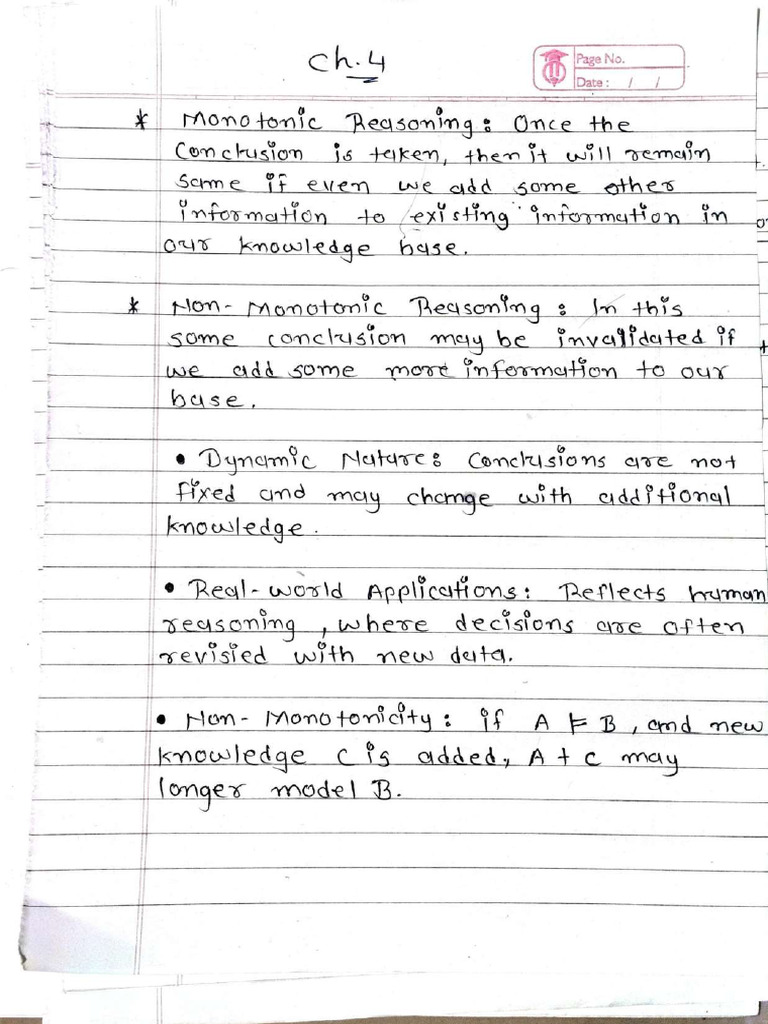 Ch.4
Page No.
Date : / /
* Monotonic Reasoning: Once the
Conclusion is taken, then it will remain
same if even we add some other
information to existing information in
our knowledge base.
* Non-Monotonic Reasoning: In this
some conclusion may be invalidated if
we add some more information to our
base.
• Dynamic Nature: Conclusions are not
fixed and may change with additional
knowledge.
• Real-world Applications: Reflects human
reasoning, where decisions are often
revisied with new data.
• Non-Monotonicity: if A ⊨ B, and new
knowledge C is added, A + C may
longer model B.